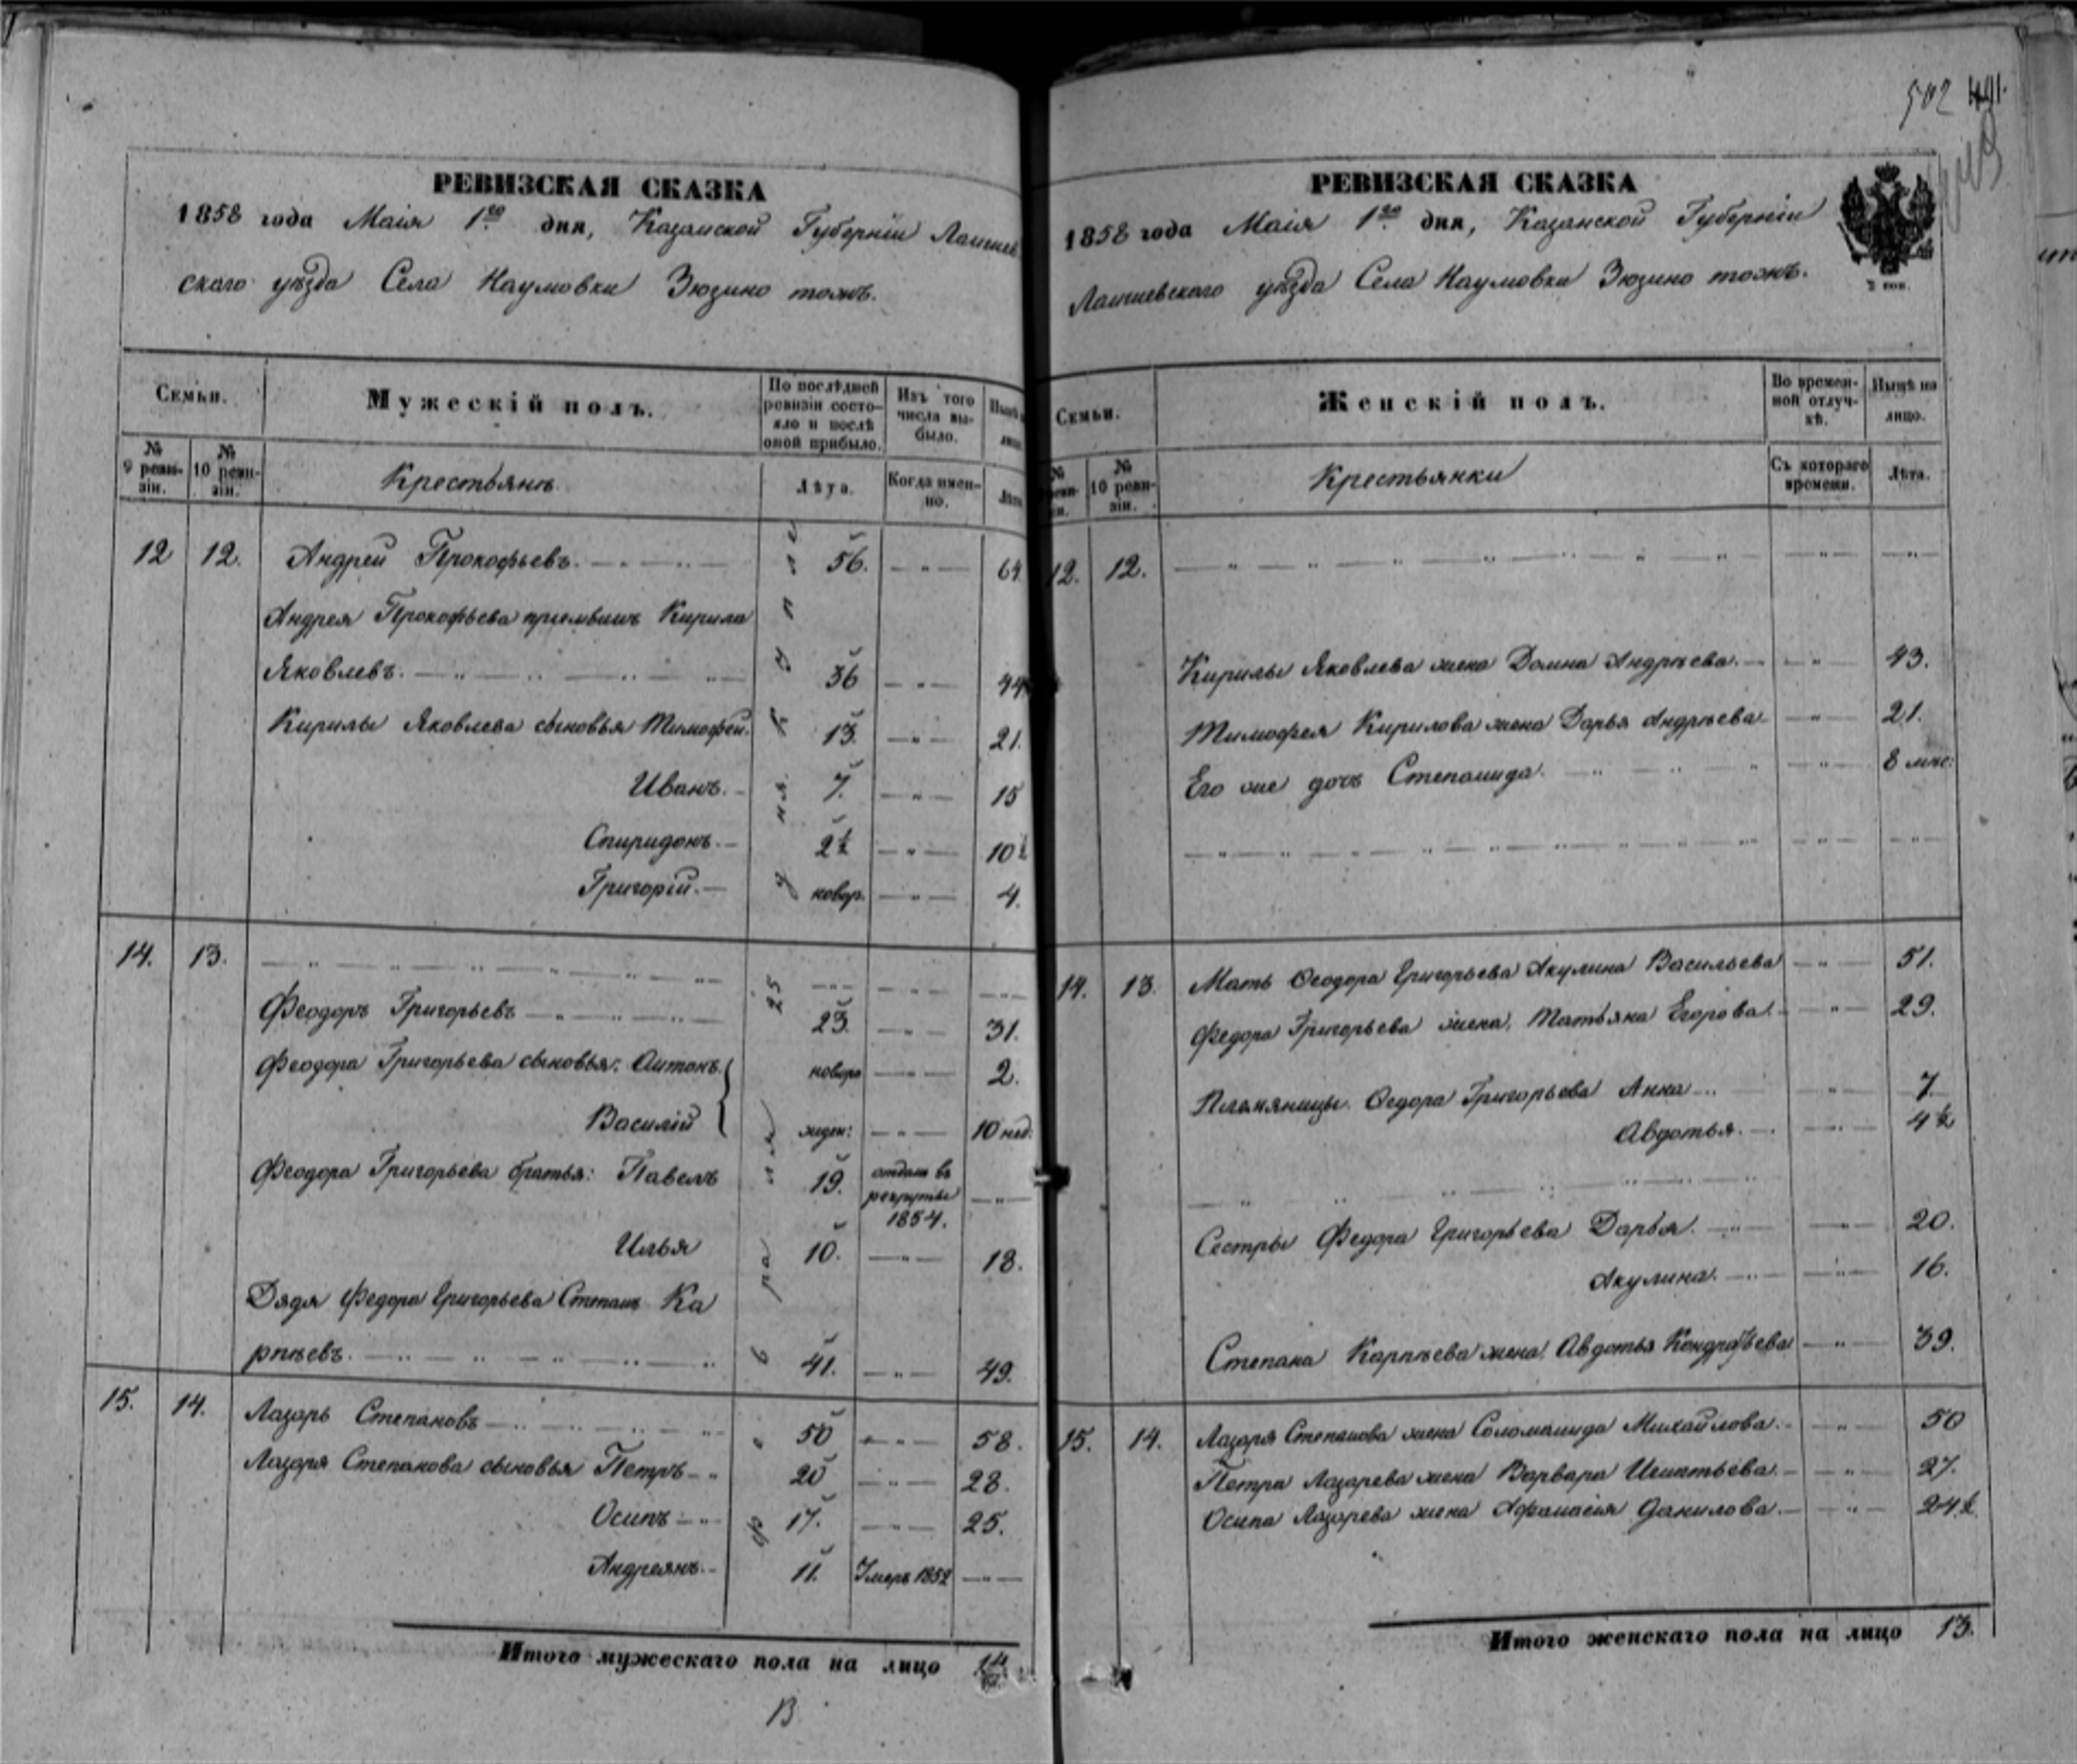 502
РЕВИЗСКАЯ СКАЗКА
1858 года Маія 1го дня, Казанской Губерніи Лаишев
скаго уѣзда Села Наумовки Зюзино тожъ.
Семьи.
Мужескій полъ.
По послѣдней ревизіи состояло и послѣ оной прибыло.
Изъ того числа выбыло.
№ 9 ревизіи.
№ 10 ревизіи.
Крестьянъ
Лѣта.
Когда именно.
12 12. Андрей Прокофьевъ. 56. 64
Андрея Прокофьева пріемышъ Кирила
Яковлевъ. 36 44
Кирилы Яковлева сыновья Тимофей. 13. 21.
Иванъ. 7. 15
Спиридонъ. 2½ 10½
Григорій. новор. 4.
14. 13.
Феодоръ Григорьевъ 23. 31.
Феодора Григорьева сыновья: Антонъ. новоро 2.
Василій 10 нед.
Феодора Григорьева братья: Павелъ 19. отданъ въ рекруты 1854.
Илья 10. 18.
Дядя Федора Григорьева Степанъ Ка
рпѣевъ. 41. 49.
15. 14. Лазарь Степановъ 50 58.
Лазаря Степанова сыновья Петръ 20 28.
Осипъ 17. 25.
Андреянъ. 11. Умеръ 1852
Итого мужескаго пола на лицо 14
В
РЕВИЗСКАЯ СКАЗКА
1858 года Маія 1го дня, Казанской Губерніи
Лаишевскаго уѣзда Села Наумовки Зюзино тожъ.
Семьи.
Женскій полъ.
Во временной отлучкѣ.
Нынѣ на лицо.
№ 10 ревизіи.
Крестьянки
Съ котораго времени.
Лѣта.
12. 12.
Кирилы Яковлева жена Домна Андрѣева. 43.
Тимофея Кирилова жена Дарья Андрѣева 21.
Его же дочь Степанида. 8 мѣс:
14. 13. Мать Феодора Григорьева Акулина Васильева 51.
Федора Григорьева жена, Татьяна Егорова. 29.
Племяницы Федора Григорьева Анна 7
Авдотья. 4½
Сестры Федора Григорьева Дарья. 20.
Акулина. 16.
Степана Карпѣева жена, Авдотья Кондратьева 39.
15. 14. Лазаря Степанова жена Соломанида Михайлова. 50
Петра Лазарева жена Варвара Игнатьева. 27.
Осипа Лазарева жена Афанасія Данилова. 24½
Итого женскаго пола на лицо 13.